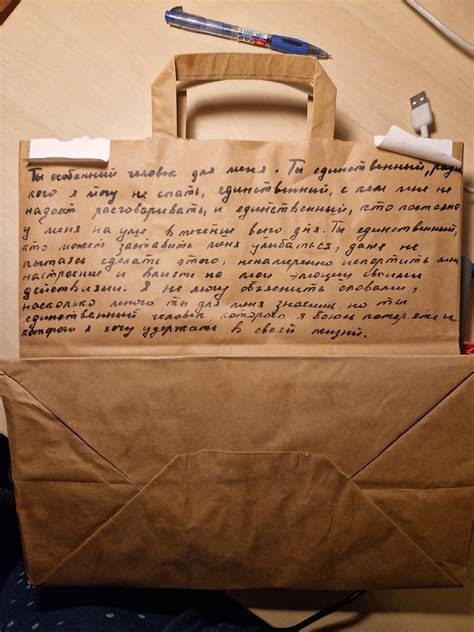 Ты особенный человек для меня. Ты единственный, ради
кого я могу не спать, единственный, с кем мне не
надоест разговаривать, и единственный, кто постоянно
у меня на уме в течение всего дня. Ты единственный,
кто может заставить меня улыбаться, даже не
пытаясь сделать этого, ненамеренно испортить мне
настроение и влиять на мои эмоции своими
действиями. Я не могу объяснить словами,
насколько много ты для меня значишь, но ты
единственный человек, которого я боюсь потерять и
которого я хочу удержать в своей жизни.